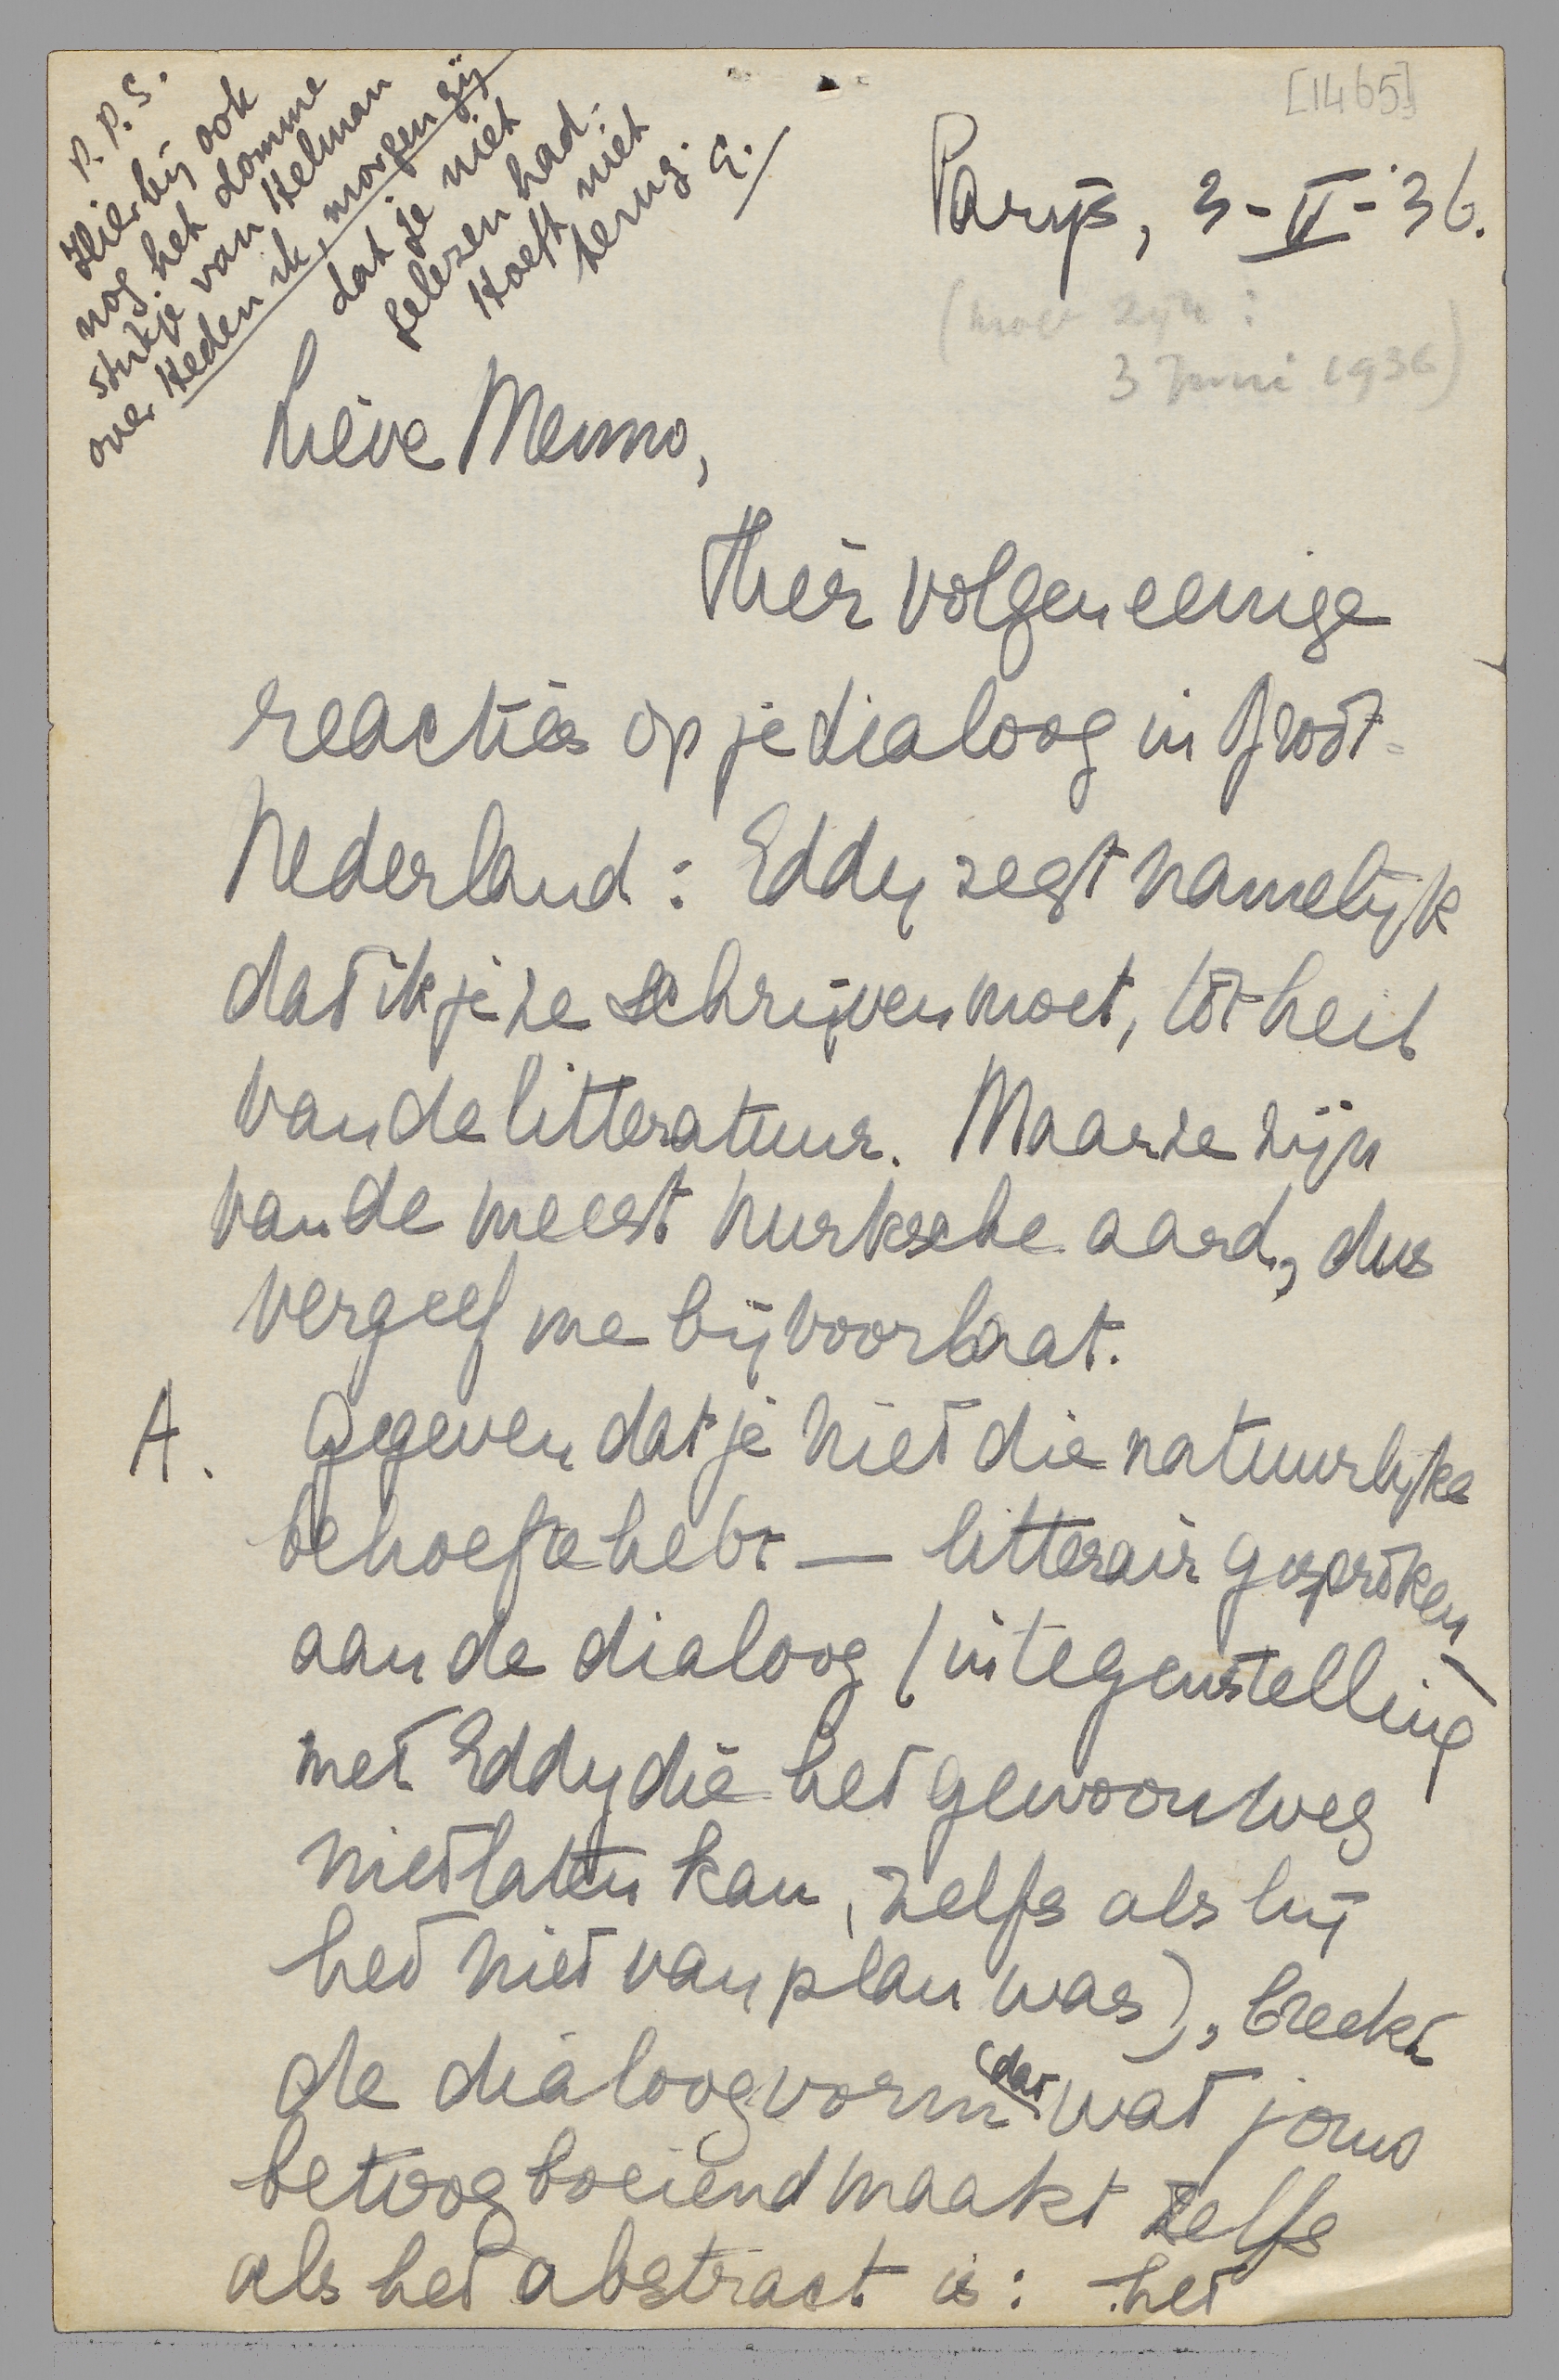 P.P.S.
Hierbij ook
nog het domme
stukje van Helman
over Heden ik, morgen gij
dat je niet
gelezen had.
Hoeft niet
terug. E.
[1465]
Parijs, 3-II-'36.
(moet zijn:
3 Juni 1936)
Lieve Menno,
Hier volgen eenige
reacties op je dialoog in Groot-
Nederland: Eddy zegt namelijk
dat ik je ze schrijven moet, tot heil
van de litteratuur. Maar ze zijn
van de meest hurksche aard, dus
vergeef me bij voorbaat.
A. Gegeven dat je niet die natuurlijke
behoefte hebt — litterair gesproken —
aan de dialoog (in tegenstelling
met Eddy die het gewoonweg
niet laten kan, zelfs als hij
het niet van plan was), breekt
de dialoogvorm (dat wat jouw
betoog boeiend maakt zelfs
als het abstract is: het